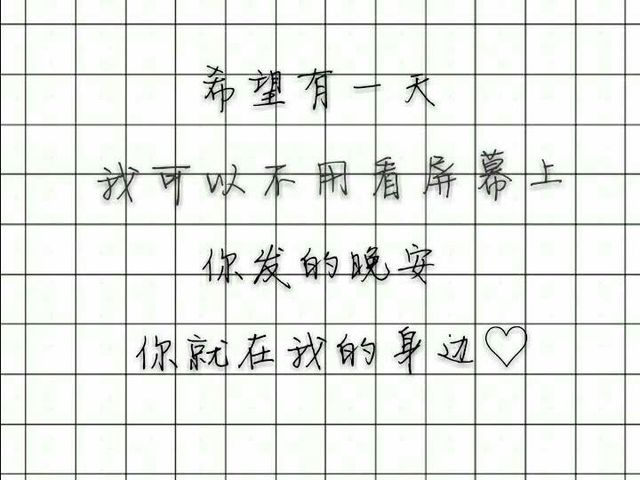 希望有一天
我可以不用看屏幕上
你发的晚安
你就在我的身边♡